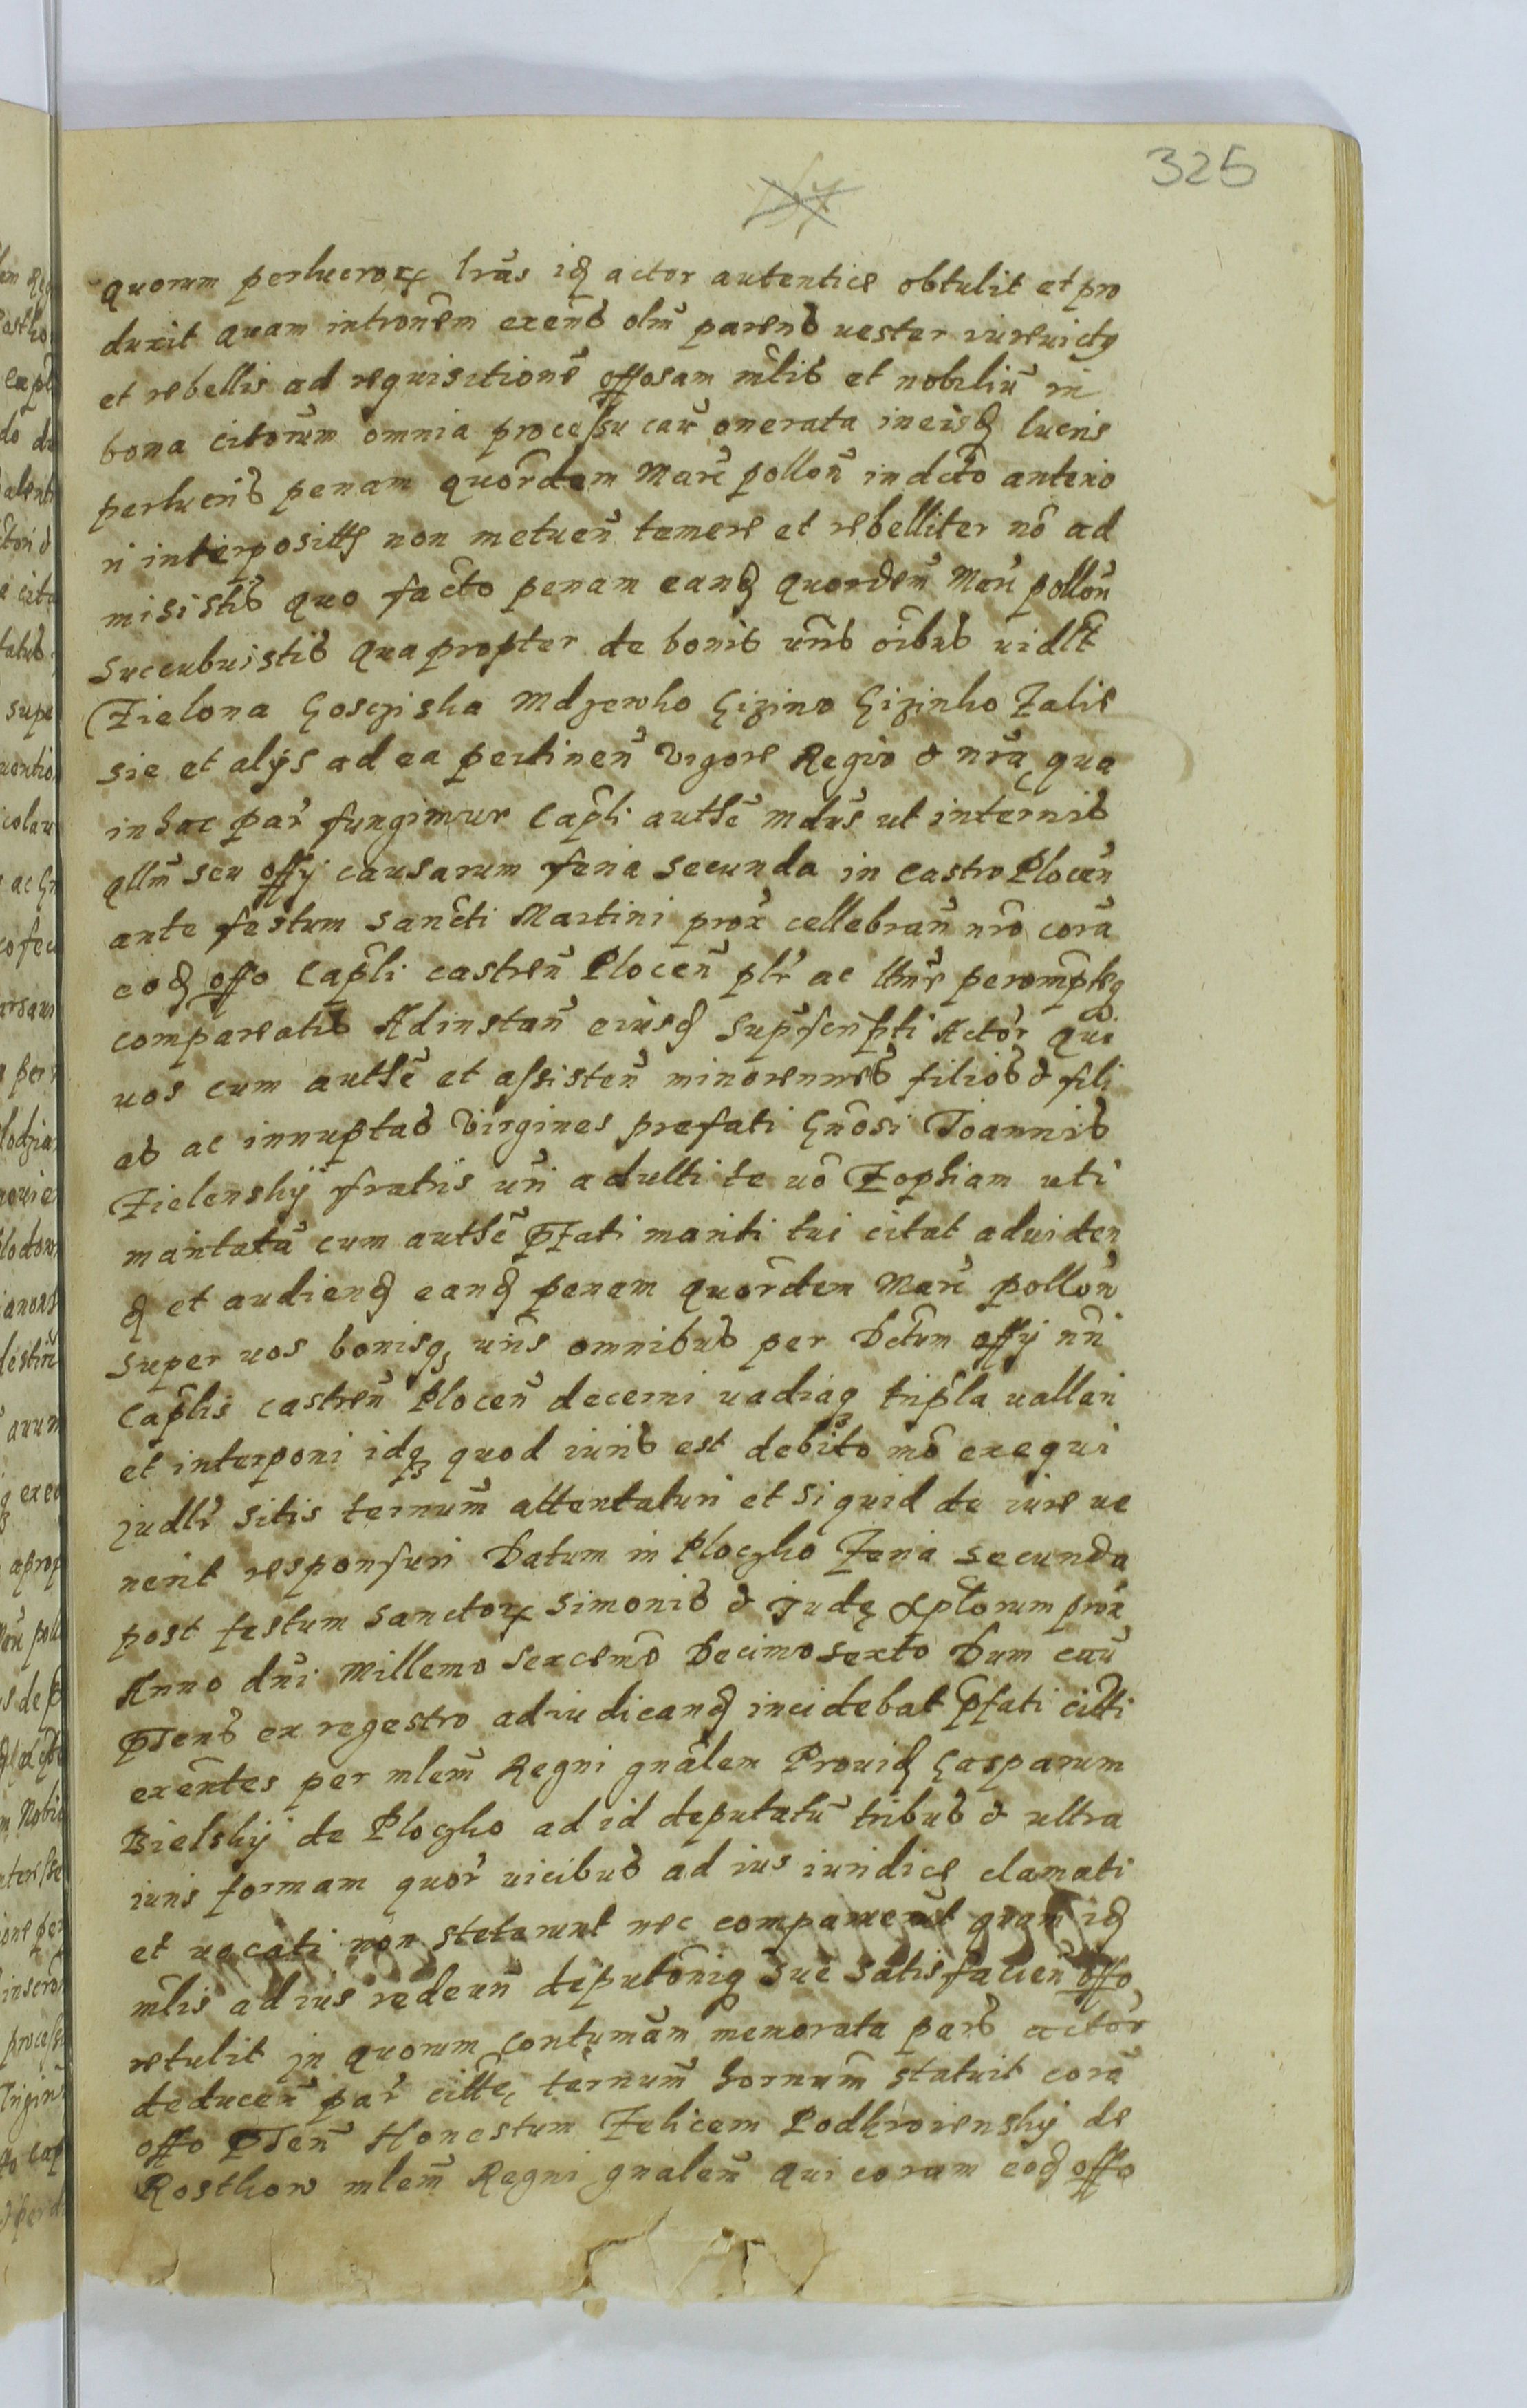 325
quorum perlucror lras id actor autentice obtulit et pro
duxit quam intronem exens olm parens uester iureuictq
et rebellis ad requisitione offosam mlis et nobiliu in
bona citorum omnia processu cau onerata ineisd lucris
perlucris penam quordem Marc pollon indcto anterio
ri interpositts non metuen temere et rebelliter no ad
misistis quo facto penam eand quordem Marc pollon
succubuistis quapropter de bonis uris oibus uidlt
Zielona Gosziska Mdzewko Gizino Gizinko Zalie
sie et alijs ad ea pertinen vigore Regia & nra qua
in hac par fungimur Capli authe mdus ut internis
qllm seu offy causarum feria secunda in castro Plocen
ante festum sancti Martini prox cellebran nro cora
eod offo Capli castren Plocen plr ac ttmre perompteq
compareatis Ad instan eiusd supscripti Actor qui
uos cum authe et assisten minorennes filios & fili
as ac innuptas virgines prefati Gnosi Joannis
Zielenskij fratris uri adulti te uo Zophiam uti
maritata cum authe pfati mariti tui citat aduiden
d et audiend eand penam quordem Marc pollon
super uos bonisq uris omnibus per Dctum offy nri
Caplis castren Plocen decerni uadiaq tripla uallari
et interponi idq quod iuris est debito mo exequi
judlr sitis ternum attentaturi et si quid de iure ue
nerit responsuri Datum in Ploczko Feria secunda
post festum sanctor Simonis & Judę Aptorum prox
Anno dni Millemo sexcemo Decimo sexto Dum cau
pns ex regestro adiudicand incidebat pfati citti
exentes per mlem Regni gnalem Prouid Gasparum
Bielskij de Ploczko ad id deputatu tribus & ultra
iuris formam quor uicibus ad ius iuridice clamati
et uocati non steterunt nec comparuerut quam id
mlis ad ius redeun deputoniq sue satisfacien offo
retulit jn quorum contumam memorata pars actor
deducen par citte ternum hornum statuit cora
offo pten Honestum Felicem Podkrwienskij de
Rosthow mlem Regni gnalem qui coram eod offo